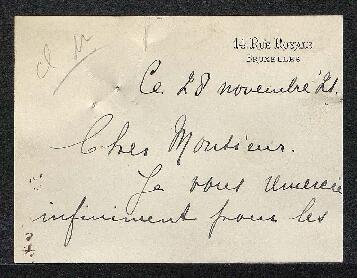 14 RUE ROYALE
BRUXELLES
Ce 28 novembre 21.
Cher Monsieur.
Je vous remercie
infiniment pour les